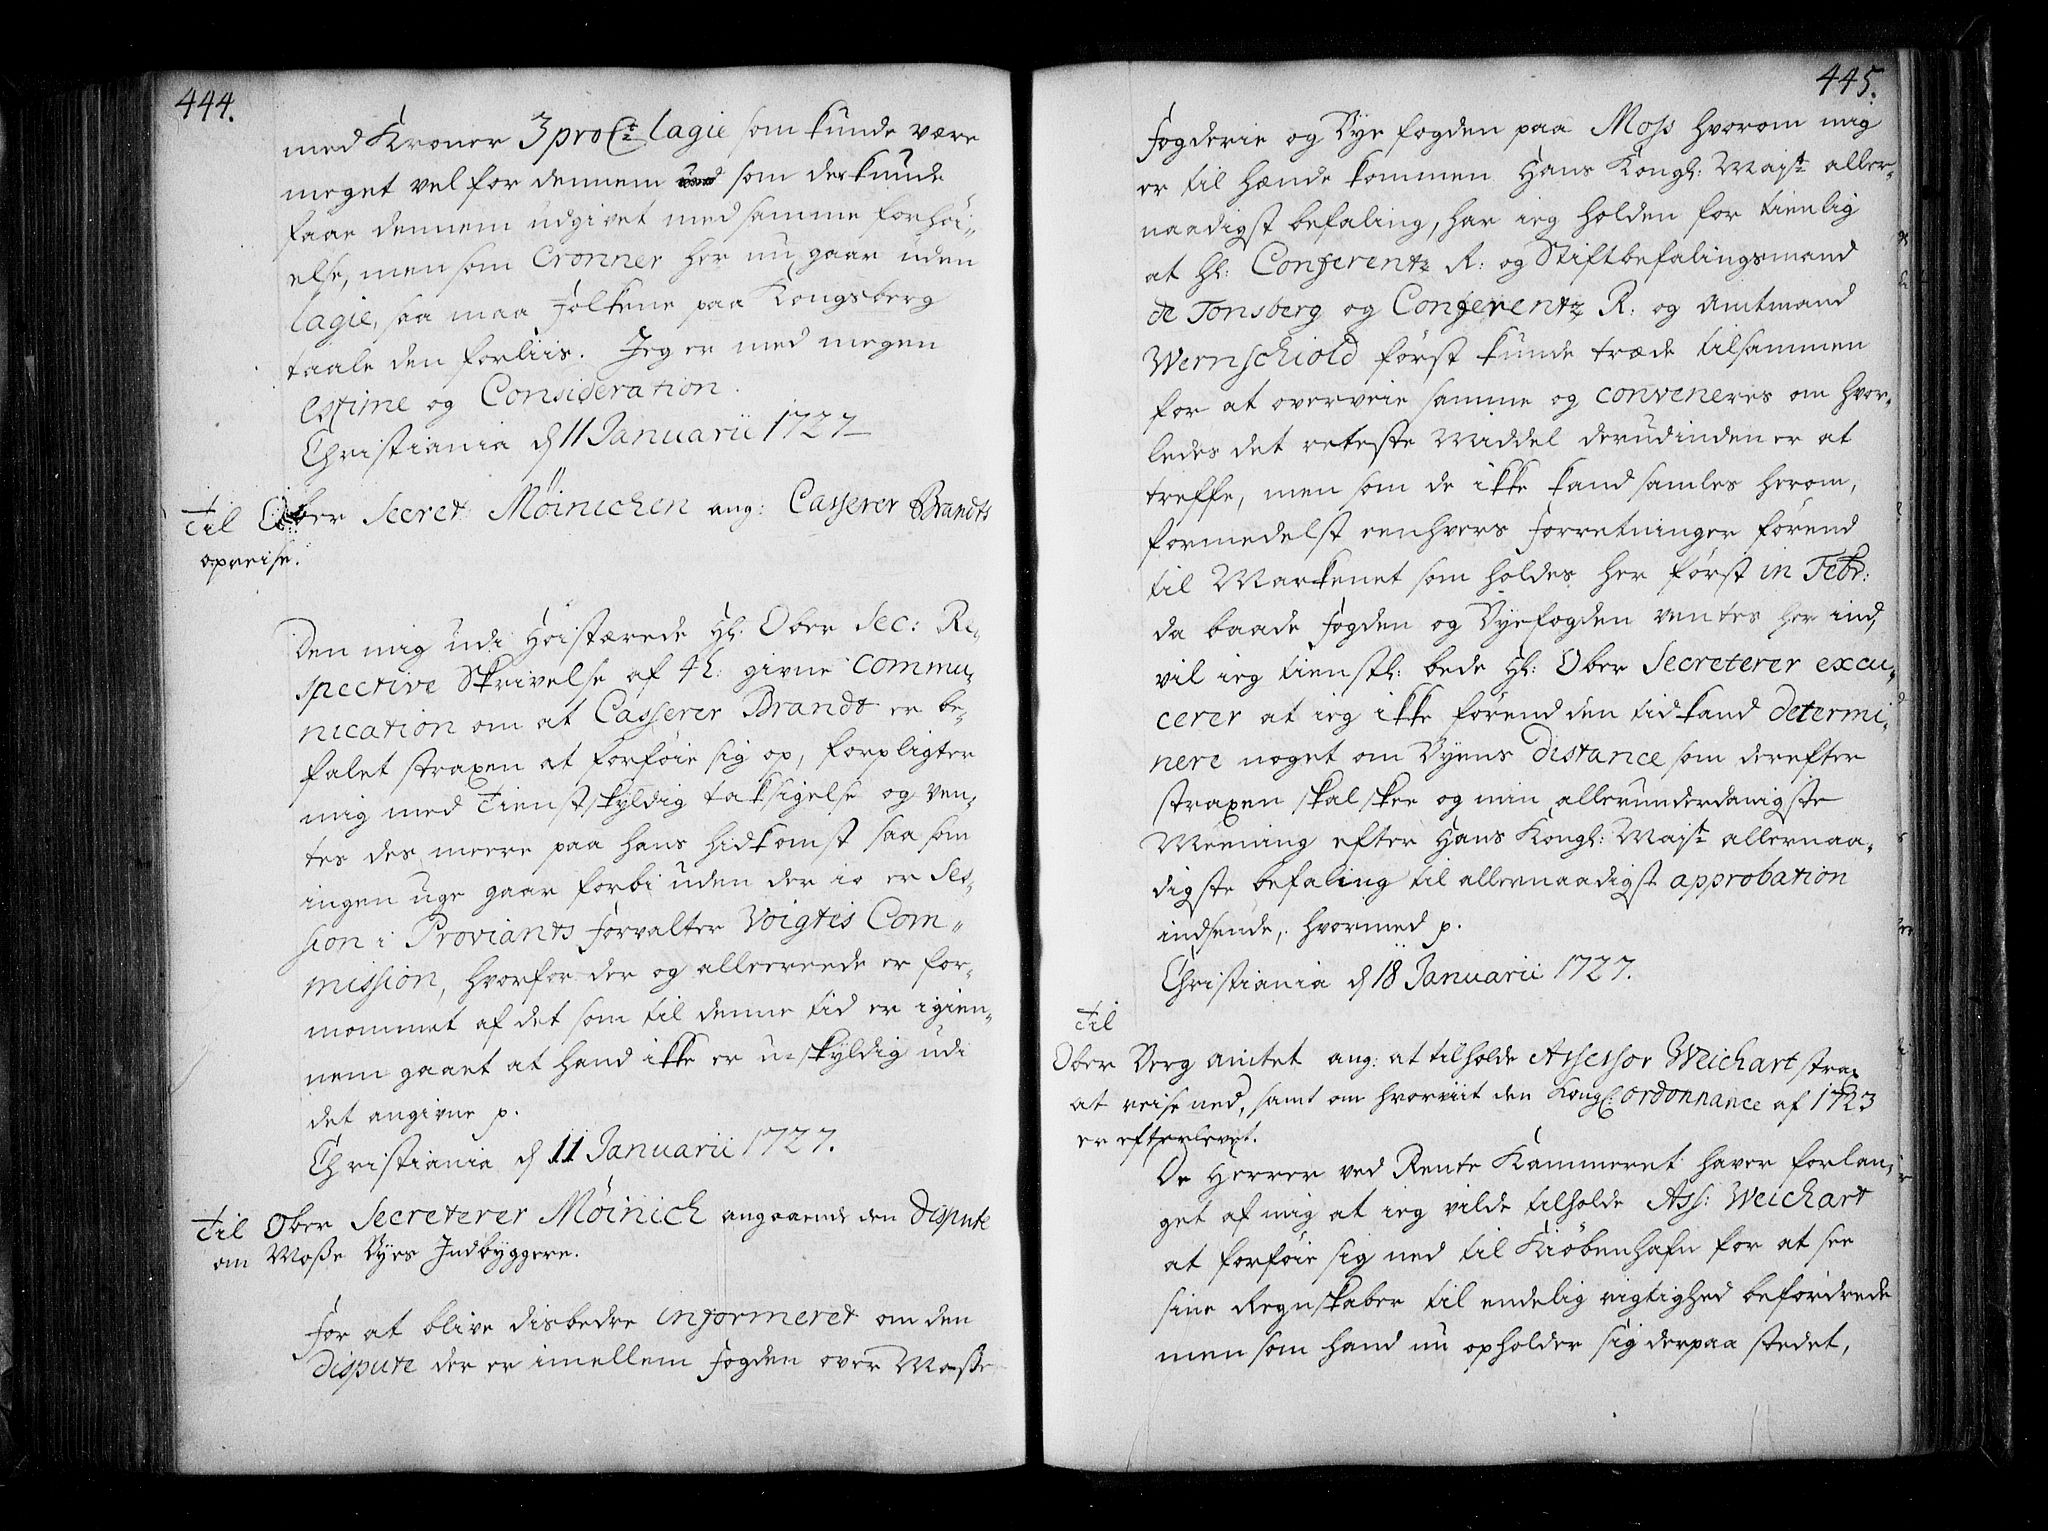 444.
med Kroner 3 pro Ct lagie som kunde være
meget vel for dennem som der kunde
faae dennem udgivet med samme forhøi,,
else, men som Cronner her nu gaar uden
lagie, saa maa Folkene paa Kongsberg
taale den forliis. Jeg er med megen
estime og Consideration.
Christiania d 11 Januarii 1727
Til Ober Secret Møinichen ang: Casserer Brandts
opreise.
Den mig udi høistærede Hl. Ober Sec: Re,,
spective Skrivelse af 4 h: givne commu,,
nication om at Casserer Brandt er be,,
falet straxen at forføie sig op, forpligter
mig med tienstskyldig taksigelse og ven,,
tes des meere paa hans hidkomst saa som
ingen uge gaar forbi uden der io er Ses,,
sion i Proviants Forvalter Voigtis Com,,
mission, hvorfor der og allerreede er for,,
nommet af det som til denne tid er igien,,
nem gaaet at hand ikke er uskyldig udi
det angivne p.
Christiania d 11 Januarii 1727.
Til Ober Secreterer Møinich angaaende den Dispute
om Mosse Byes Indbyggere.
For at blive disbedre informeret om den
dispute der er imellem Fogden over Mosse
445.
Fogderie og Bye fogden paa Moss hvorom mig
er til hænde kommen Hans Kongl: Majst aller,,
naadigst befaling, har ieg holden for tienlig
at Hl: Conferentz R: og Stiftbefalingsmand
de Tonsberg og Conferentz R: og Amtmand
Wernschiold først kunde træde tilsammen
for at overveie samme og conveneres om hvor,,
ledes det reteste Middel derudinden er at
treffe, men som de ikke kand samles herom,
formedelst eenhvers Forretninger førend
til Markenet som holdes her først in Febr:
da baade Fogden og Byefogden ventes her ind,
vil ieg tienstl: bede Hl: Ober Secreterer excu,,
cerer at ieg ikke førend den tid kand determi,,
nere noget om Byens Distance som derefter
straxen skal skee og min allerunderdanigste
Meening efter Hans Kongl: Majst allernaa,,
digste befaling til allernaadigst approbation
indsende, hvormed p.
Christiania d 18 Januarii 1727.
Til
Ober Berg Amtet ang: at tilholde Assessor Weichart strax
at reise ned, samt om hvorviit den Kongl: ordonnance af 1723
er efterlevet.
De Herrer ved Rente Kammeret haver forlan,,
get af mig at ieg vilde tilholde Ass: Weichart
at forføie sig ned til Kiøbenhafn for at see
sine Regnskaber til endelig rigtighed befordrede
men som hand nu opholder sig derpaa stedet,